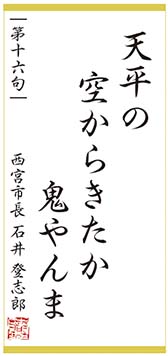 天平の
空からきたか
鬼やんま
第十六句
西宮市長 石井 登志郎